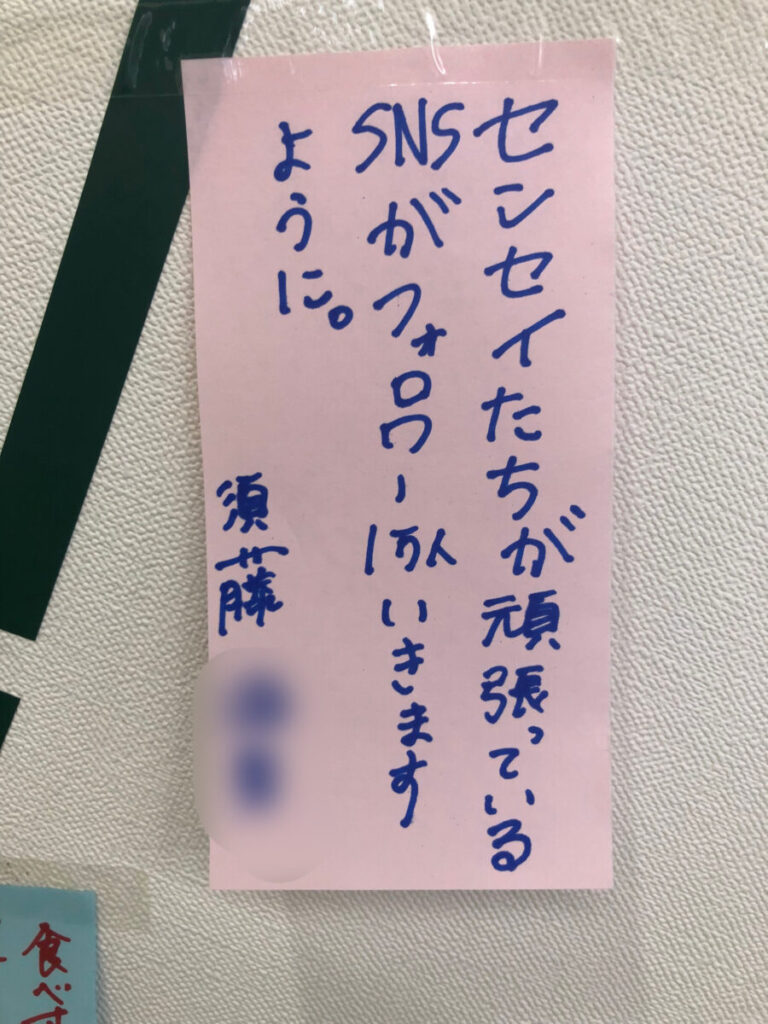 センセイたちが頑張っている
SNSがフォロワー1万人いきます
ように。
須藤
食べす